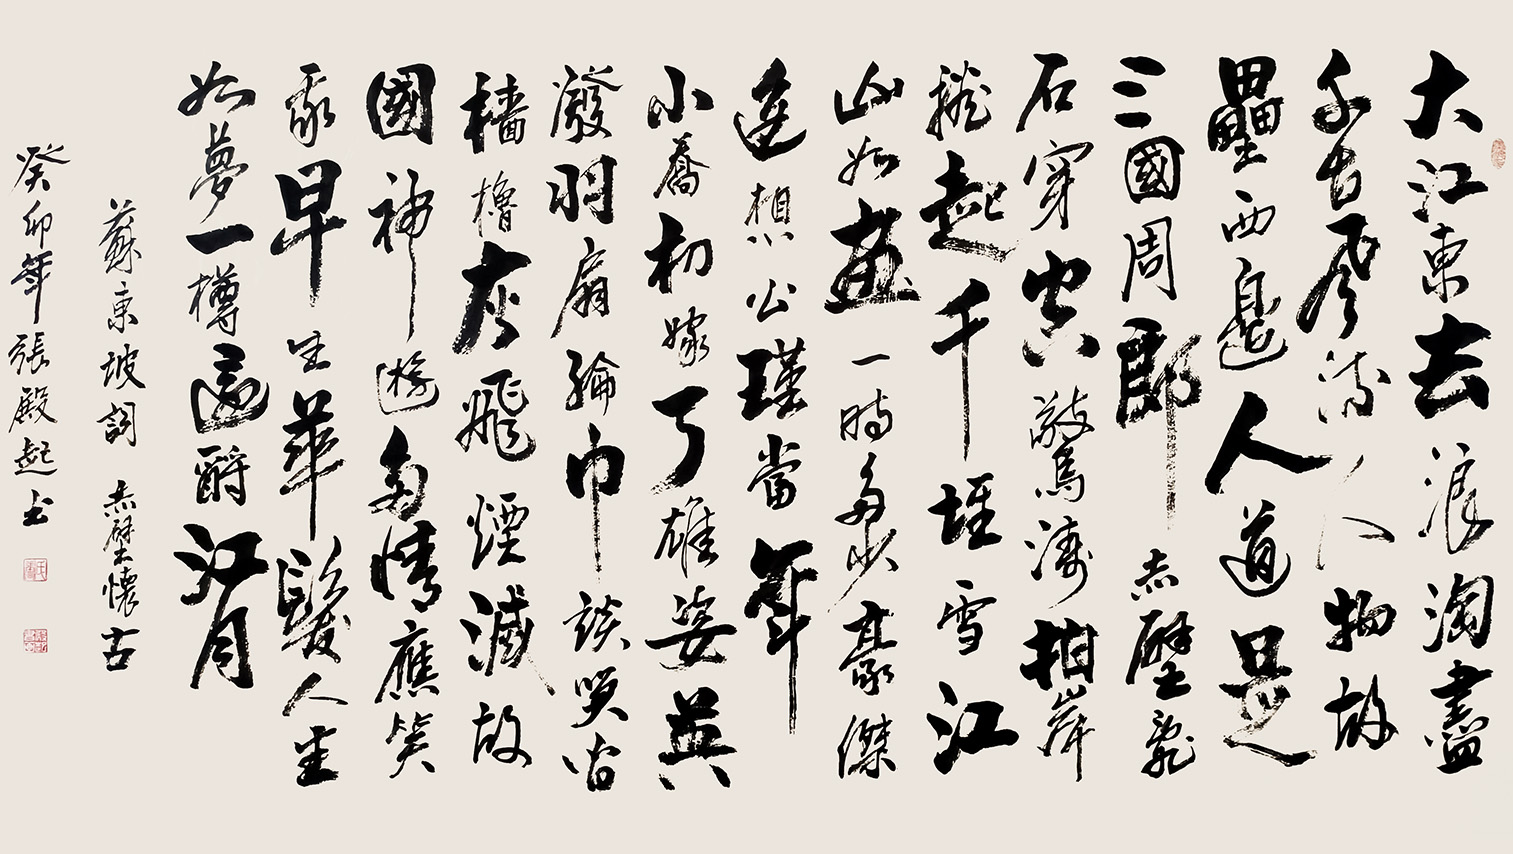 大江東去浪淘盡
千古風流人物故
壘西邊人道是
三國周郎赤壁亂
石穿空驚濤拍岸
捲起千堆雪江
山如畫一時多少豪傑
遥想公瑾當年
小喬初嫁了雄姿英
潑羽扇綸巾談笑間
檣櫓灰飛煙滅故
國神遊多情應笑
我早生華髮人生
如夢一樽還酹江月
蘇東坡詞 赤壁懷古
癸卯年張殿起书